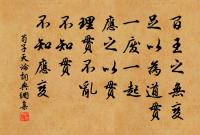 百王之無變
足以為道貫
一廢一起
應之以貫
理貫不亂
不知貫
不知應變
荀子天論詞典網集